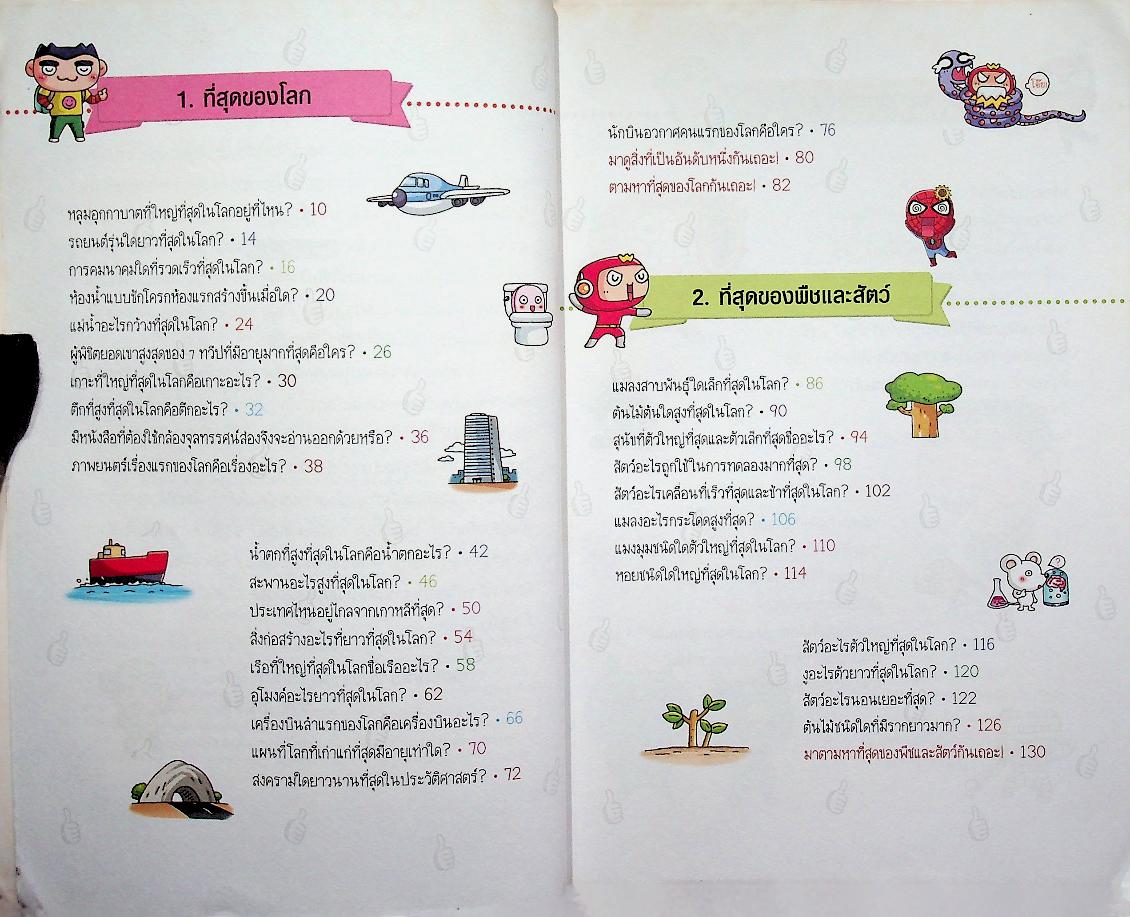 1. ที่สุดของโลก
หลุมอุกกาบาตที่ใหญ่ที่สุดในโลกอยู่ที่ไหน? • 10
รถยนต์รุ่นใดยาวที่สุดในโลก? • 14
การคมนาคมใดที่รวดเร็วที่สุดในโลก? • 16
ห้องน้ำแบบชักโครกห้องแรกสร้างขึ้นเมื่อใด? • 20
แม่น้ำอะไรกว้างที่สุดในโลก? • 24
ผู้พิชิตยอดเขาสูงสุดของ 7 ทวีปที่มีอายุมากที่สุดคือใคร? • 26
เกาะที่ใหญ่ที่สุดในโลกคือเกาะอะไร? • 30
ตึกที่สูงที่สุดในโลกคือตึกอะไร? • 32
มีหนังสือที่ต้องใช้กล้องจุลทรรศน์ส่องจึงจะอ่านออกด้วยหรือ? • 36
ภาพยนตร์เรื่องแรกของโลกคือเรื่องอะไร? • 38
น้ำตกที่สูงที่สุดในโลกคือน้ำตกอะไร? • 42
สะพานอะไรสูงที่สุดในโลก? • 46
ประเทศไหนอยู่ไกลจากเกาหลีที่สุด? • 50
สิ่งก่อสร้างอะไรที่ยาวที่สุดในโลก? • 54
เรือที่ใหญ่ที่สุดในโลกชื่อเรืออะไร? • 58
อุโมงค์อะไรยาวที่สุดในโลก? • 62
เครื่องบินลำแรกของโลกคือเครื่องบินอะไร? • 66
แผนที่โลกที่เก่าแก่ที่สุดมีอายุเท่าใด? • 70
สงครามใดยาวนานที่สุดในประวัติศาสตร์? • 72
โอ๊ย!
นักบินอวกาศคนแรกของโลกคือใคร? • 76
มาดูสิ่งที่เป็นอันดับหนึ่งกันเถอะ! • 80
ตามหาที่สุดของโลกกันเถอะ! • 82
2. ที่สุดของพืชและสัตว์
แมลงสาบพันธุ์ใดเล็กที่สุดในโลก? • 86
ต้นไม้ต้นใดสูงที่สุดในโลก? • 90
สุนัขที่ตัวใหญ่ที่สุดและตัวเล็กที่สุดชื่ออะไร? • 94
สัตว์อะไรถูกใช้ในการทดลองมากที่สุด? • 98
สัตว์อะไรเคลื่อนที่เร็วที่สุดและช้าที่สุดในโลก? • 102
แมลงอะไรกระโดดสูงที่สุด? • 106
แมงมุมชนิดใดตัวใหญ่ที่สุดในโลก? • 110
หอยชนิดใดใหญ่ที่สุดในโลก? • 114
สัตว์อะไรตัวใหญ่ที่สุดในโลก? • 116
งูอะไรตัวยาวที่สุดในโลก? • 120
สัตว์อะไรนอนเยอะที่สุด? • 122
ต้นไม้ชนิดใดที่มีรากยาวมาก? • 126
มาตามหาที่สุดของพืชและสัตว์กันเถอะ! • 130